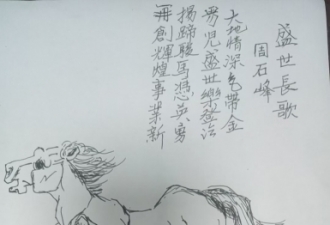 盛世長歌
周石峰
大地情深气帶金
男児盛世樂登治
揚蹄駿馬憑英勇
再創輝煌事業新